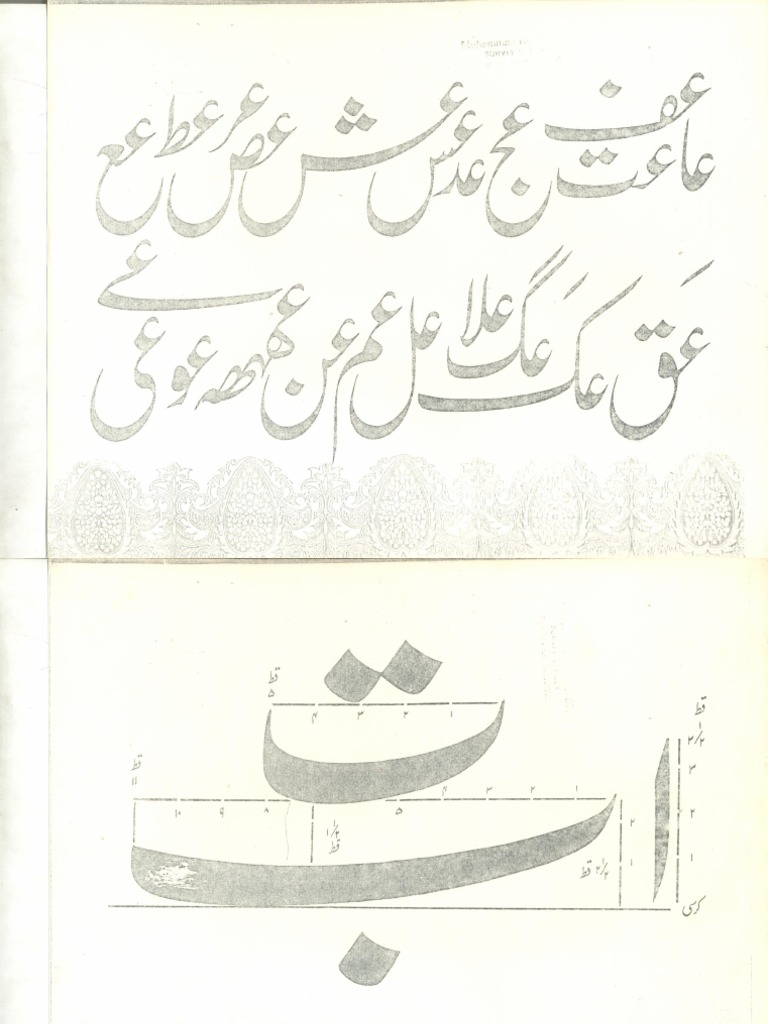 عا عت عف عج عد عس عش عص عر عط عع
عق عک عگ علا عل عم عن عو عی عے
ت
قط ۵
۱ ۲ ۳ ۴
قط
۳ ۱/۲
۳
۲
۱
کرسی
ا ب
۱ ۲ ۳ ۴ ۵ ۸ ۹ ۱۰
قط ۱۱
۱ ۱/۲ قط
۲
۱
۲ ۱/۲ قط